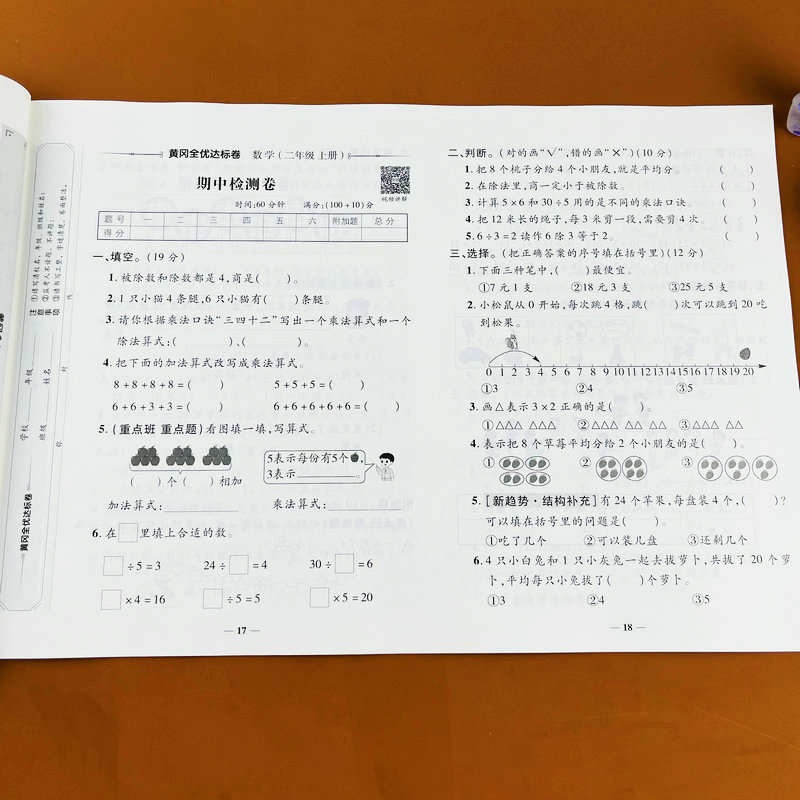 黄冈全优达标卷 数学(二年级 上册)
期中检测卷
视频讲解
时间:60分钟 满分:(100+10)分
题号 一 二 三 四 五 六 附加题 总分
得分
一、填空。(19分)
1.被除数和除数都是4,商是( )。
2.1只小猫4条腿,6只小猫有( )条腿。
3.请你根据乘法口诀“三四十二”写出一个乘法算式和一个
除法算式:( )、( )。
4.把下面的加法算式改写成乘法算式。
8+8+8+8=( ) 5+5+5=( )
6+6+3+3=( ) 6+6+6+6+6=( )
5.(重点班 重点题)看图填一填,写算式。
5表示每份有5个,
3表示 。
( )个( )相加
加法算式: 乘法算式:
6.在□里填上合适的数。
□÷5=3 24÷□=4 30÷□=6
□×4=16 □÷5=5 □×5=20
— 17 —
二、判断。(对的画“√”,错的画“×”)(10分)
1.把8个桃子分给4个小朋友,就是平均分。 ( )
2.在除法里,商一定小于被除数。 ( )
3.计算5×6和30÷5用的是不同的乘法口诀。 ( )
4.把12米长的绳子,每3米剪一段,需要剪4次。 ( )
5.6÷3=2读作6除3等于2。 ( )
三、选择。(把正确答案的序号填在括号里)(12分)
1.下面三种笔中,( )最便宜。
①7元1支 ②18元3支 ③25元5支
2.小松鼠从0开始,每次跳4格,跳( )次可以跳到20吃
到松果。
0 1 2 3 4 5 6 7 8 9 10 11 12 13 14 15 16 17 18 19 20
①3 ②4 ③5
3.画△表示3×2正确的是( )。
①△△△ △△△ ②△△△ △△ ③△△ △△ △△ △△
4.表示把8个草莓平均分给2个小朋友的是( )。
① ② ③
5.[新趋势·结构补充]有24个苹果,每盘装4个,( )?
可以填在括号里的问题是( )。
①吃了几个 ②可以装几盘 ③还剩几个
6.4只小白兔和1只小灰兔一起去拔萝卜,共拔了20个萝
卜,平均每只小兔拔了( )个萝卜。
①3 ②4 ③5
— 18 —
注意事项
①请写清校名、年级、班级和姓名;
②监考人不读题、不讲题;
③请书写工整,字迹清楚,卷面整洁。
学校 年级 班级 姓名
黄冈全优达标卷